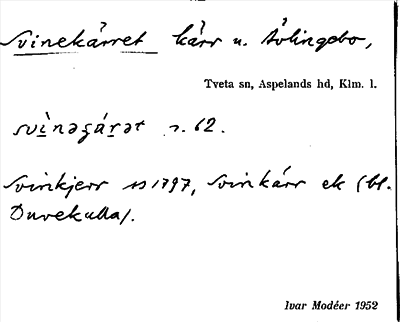 Svinekärret kärr u. Åvlingebo,
Tveta sn, Aspelands hd, Klm. l.
svìnəgárət s. 62.
Svinkjerr 1797, Svinkärr ek (bl.
Duvekulla).
Ivar Modéer 1952